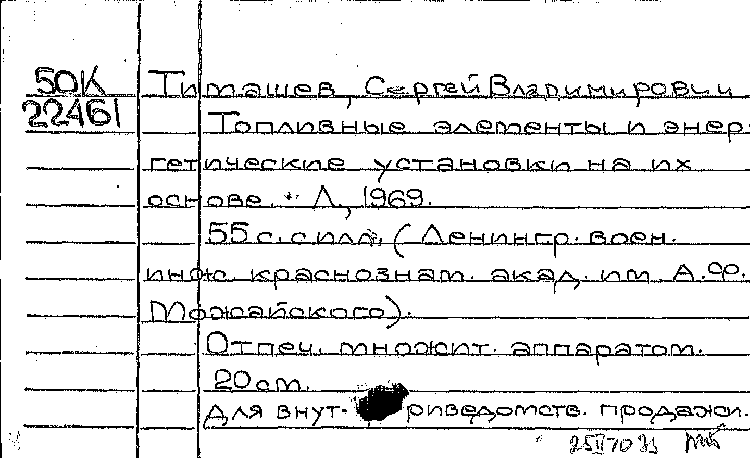 50К Тимашев, Сергей Владимирович
22461 Топливные элементы и энер-
гетические установки на их
основе. Л., 1969.
55 с. с илл. (Ленингр. воен.
инж. краснознам. акад. им. А.Ф.
Можайского).
Отпеч. множит. аппаратом.
20 см.
Для внут- риведомств. продажи.